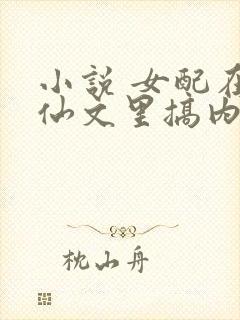 小説 女配在
仙文里搞内
枕山舟